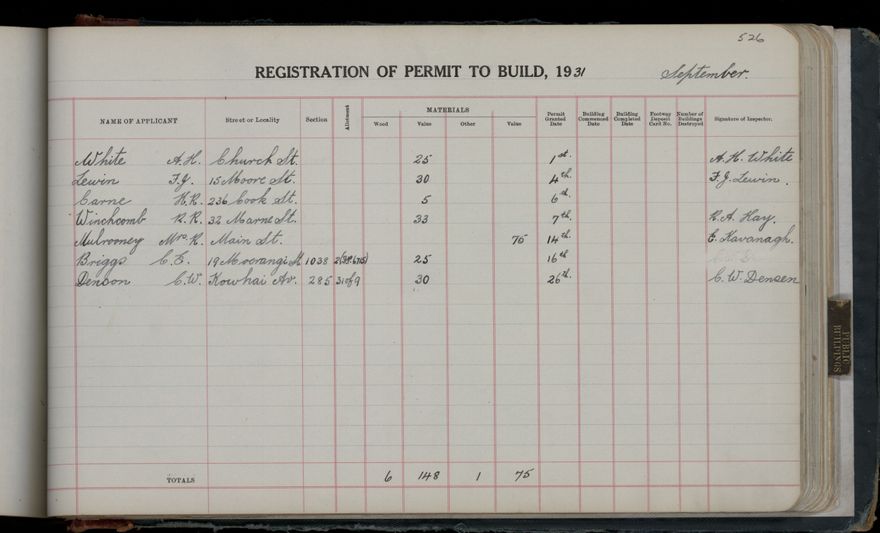 526
REGISTRATION OF PERMIT TO BUILD, 1931 September.
MATERIALS
NAME OF APPLICANT Street or Locality Section Allotment Wood Value Other Value Permit Granted Date Building Commenced Date Building Completed Date Footway Deposit Card No. Number of Buildings Destroyed Signature of Inspector.
White A.H. Church St. 25 1st. A. H. White
Lewin F.J. 15 Moore St. 30 4th. F. J. Lewin.
Carne H.R. 236 Cook St. 5 6th.
Winchcomb R.R. 32 Marne St. 33 7th. R. A. Hay.
Mulrooney Mrs. R. Main St. 75 14th. E. Kavanagh.
Briggs C.E. 19 Moerangi St 1038 25 16th
Denson C.W. Kowhai Av. 285 31 of 9 30 26th. C. W. Densen
TOTALS 6 148 1 75
PUBLIC BUILDINGS